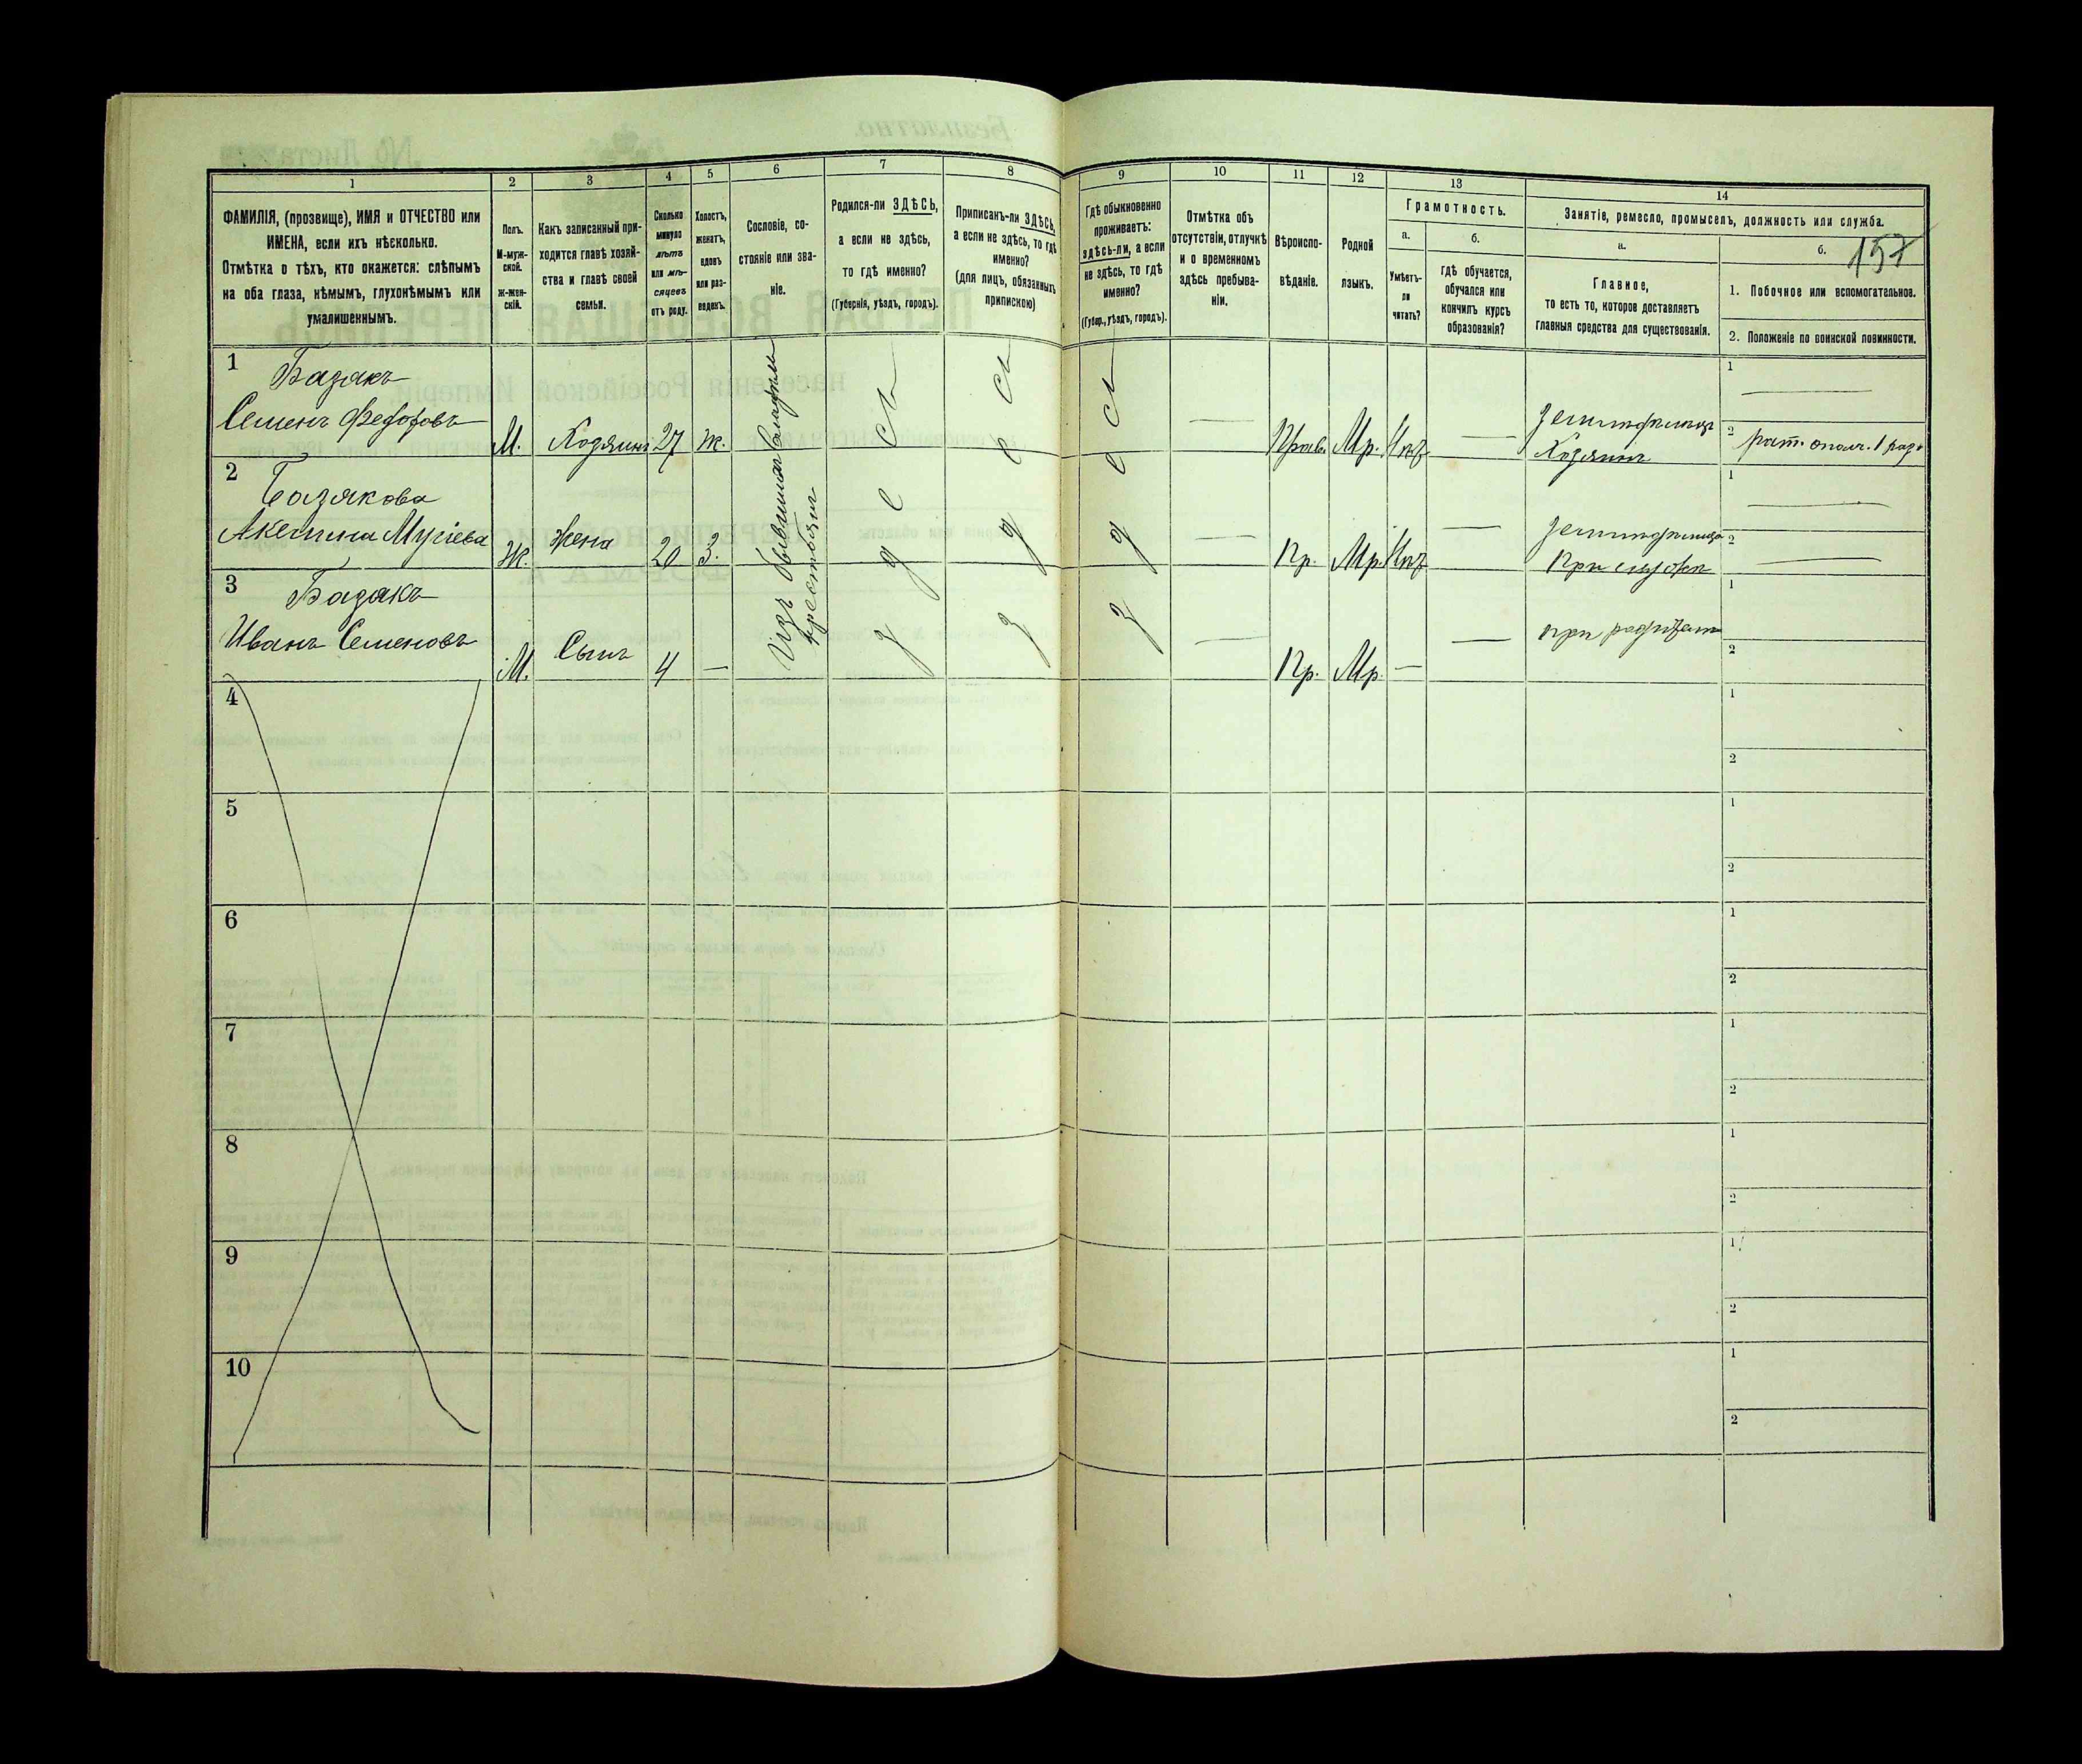 1
2
3
4
5
6
7
8
9
10
11
12
13
14
ФАМИЛІЯ, (прозвище), ИМЯ и ОТЧЕСТВО или
ИМЕНА, если ихъ нѣсколько.
Отмѣтка о тѣхъ, кто окажется: слѣпымъ
на оба глаза, нѣмымъ, глухонѣмымъ или
умалишеннымъ.
Полъ.
М-муж-
ской.
ж-жен-
скій.
Какъ записанный при-
ходится главѣ хозяй-
ства и главѣ своей
семьи.
Сколько
минуло
лѣтъ
или мѣ-
сяцевъ
отъ роду.
Холостъ,
женатъ,
вдовъ
или раз-
веденъ.
Сословіе, со-
стояніе или зва-
ніе.
Родился-ли ЗДѢСЬ,
а если не здѣсь,
то гдѣ именно?
(Губернія, уѣздъ, городъ).
Приписанъ-ли ЗДѢСЬ,
а если не здѣсь, то гдѣ
именно?
(для лицъ, обязанныхъ
припискою)
Гдѣ обыкновенно
проживаетъ:
здѣсь-ли, а если
не здѣсь, то гдѣ
именно?
(Губер., уѣздъ, городъ).
Отмѣтка объ
отсутствіи, отлучкѣ
и о временномъ
здѣсь пребыва-
ніи.
Вѣроиспо-
вѣданіе.
Родной
языкъ.
Грамотность.
а.
Умѣетъ-
ли
читать?
б.
гдѣ обучается,
обучался или
кончилъ курсъ
образованія?
Занятіе, ремесло, промыселъ, должность или служба.
а.
Главное,
то есть то, которое доставляетъ
главныя средства для существованія.
б.
157
1. Побочное или вспомогательное.
2. Положеніе по воинской повинности.
1
Базакъ
Семенъ Федоровъ
М.
Хозяинъ
27
ж.
Изъ бывшихъ
крестьянъ
здесь
здесь
здесь
—
Прав.
Мр.
Нѣт
—
Хозяинъ
1
—
2
рат. ополч. 1 разр.
2
Базакова
Ж.
Жена
20
З.
—
Пр.
Мр.
Нѣт
—
При мужѣ
1
—
2
—
3
Базакъ
Иванъ Семеновъ
М.
Сынъ
4
—
—
Пр.
Мр.
—
—
при родителѣ
1
2
4
1
2
5
1
2
6
1
2
7
1
2
8
1
2
9
1
2
10
1
2